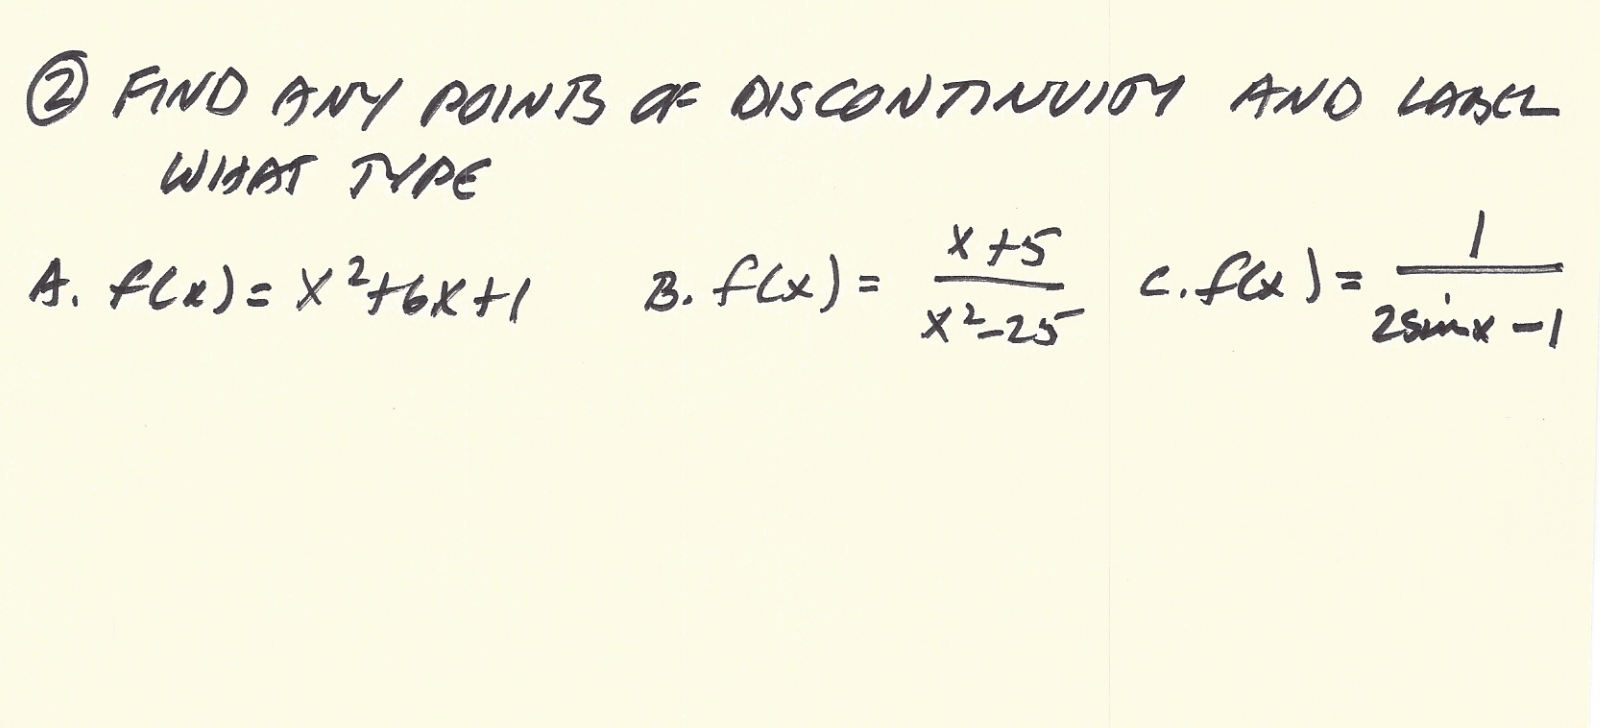 ② FIND ANY POINTS OF DISCONTINUITY AND LABEL
WHAT TYPE
A. f(x) = x²+6x+1 B. f(x) = (x+5)/(x²-25) C. f(x) = 1/(2sinx-1)